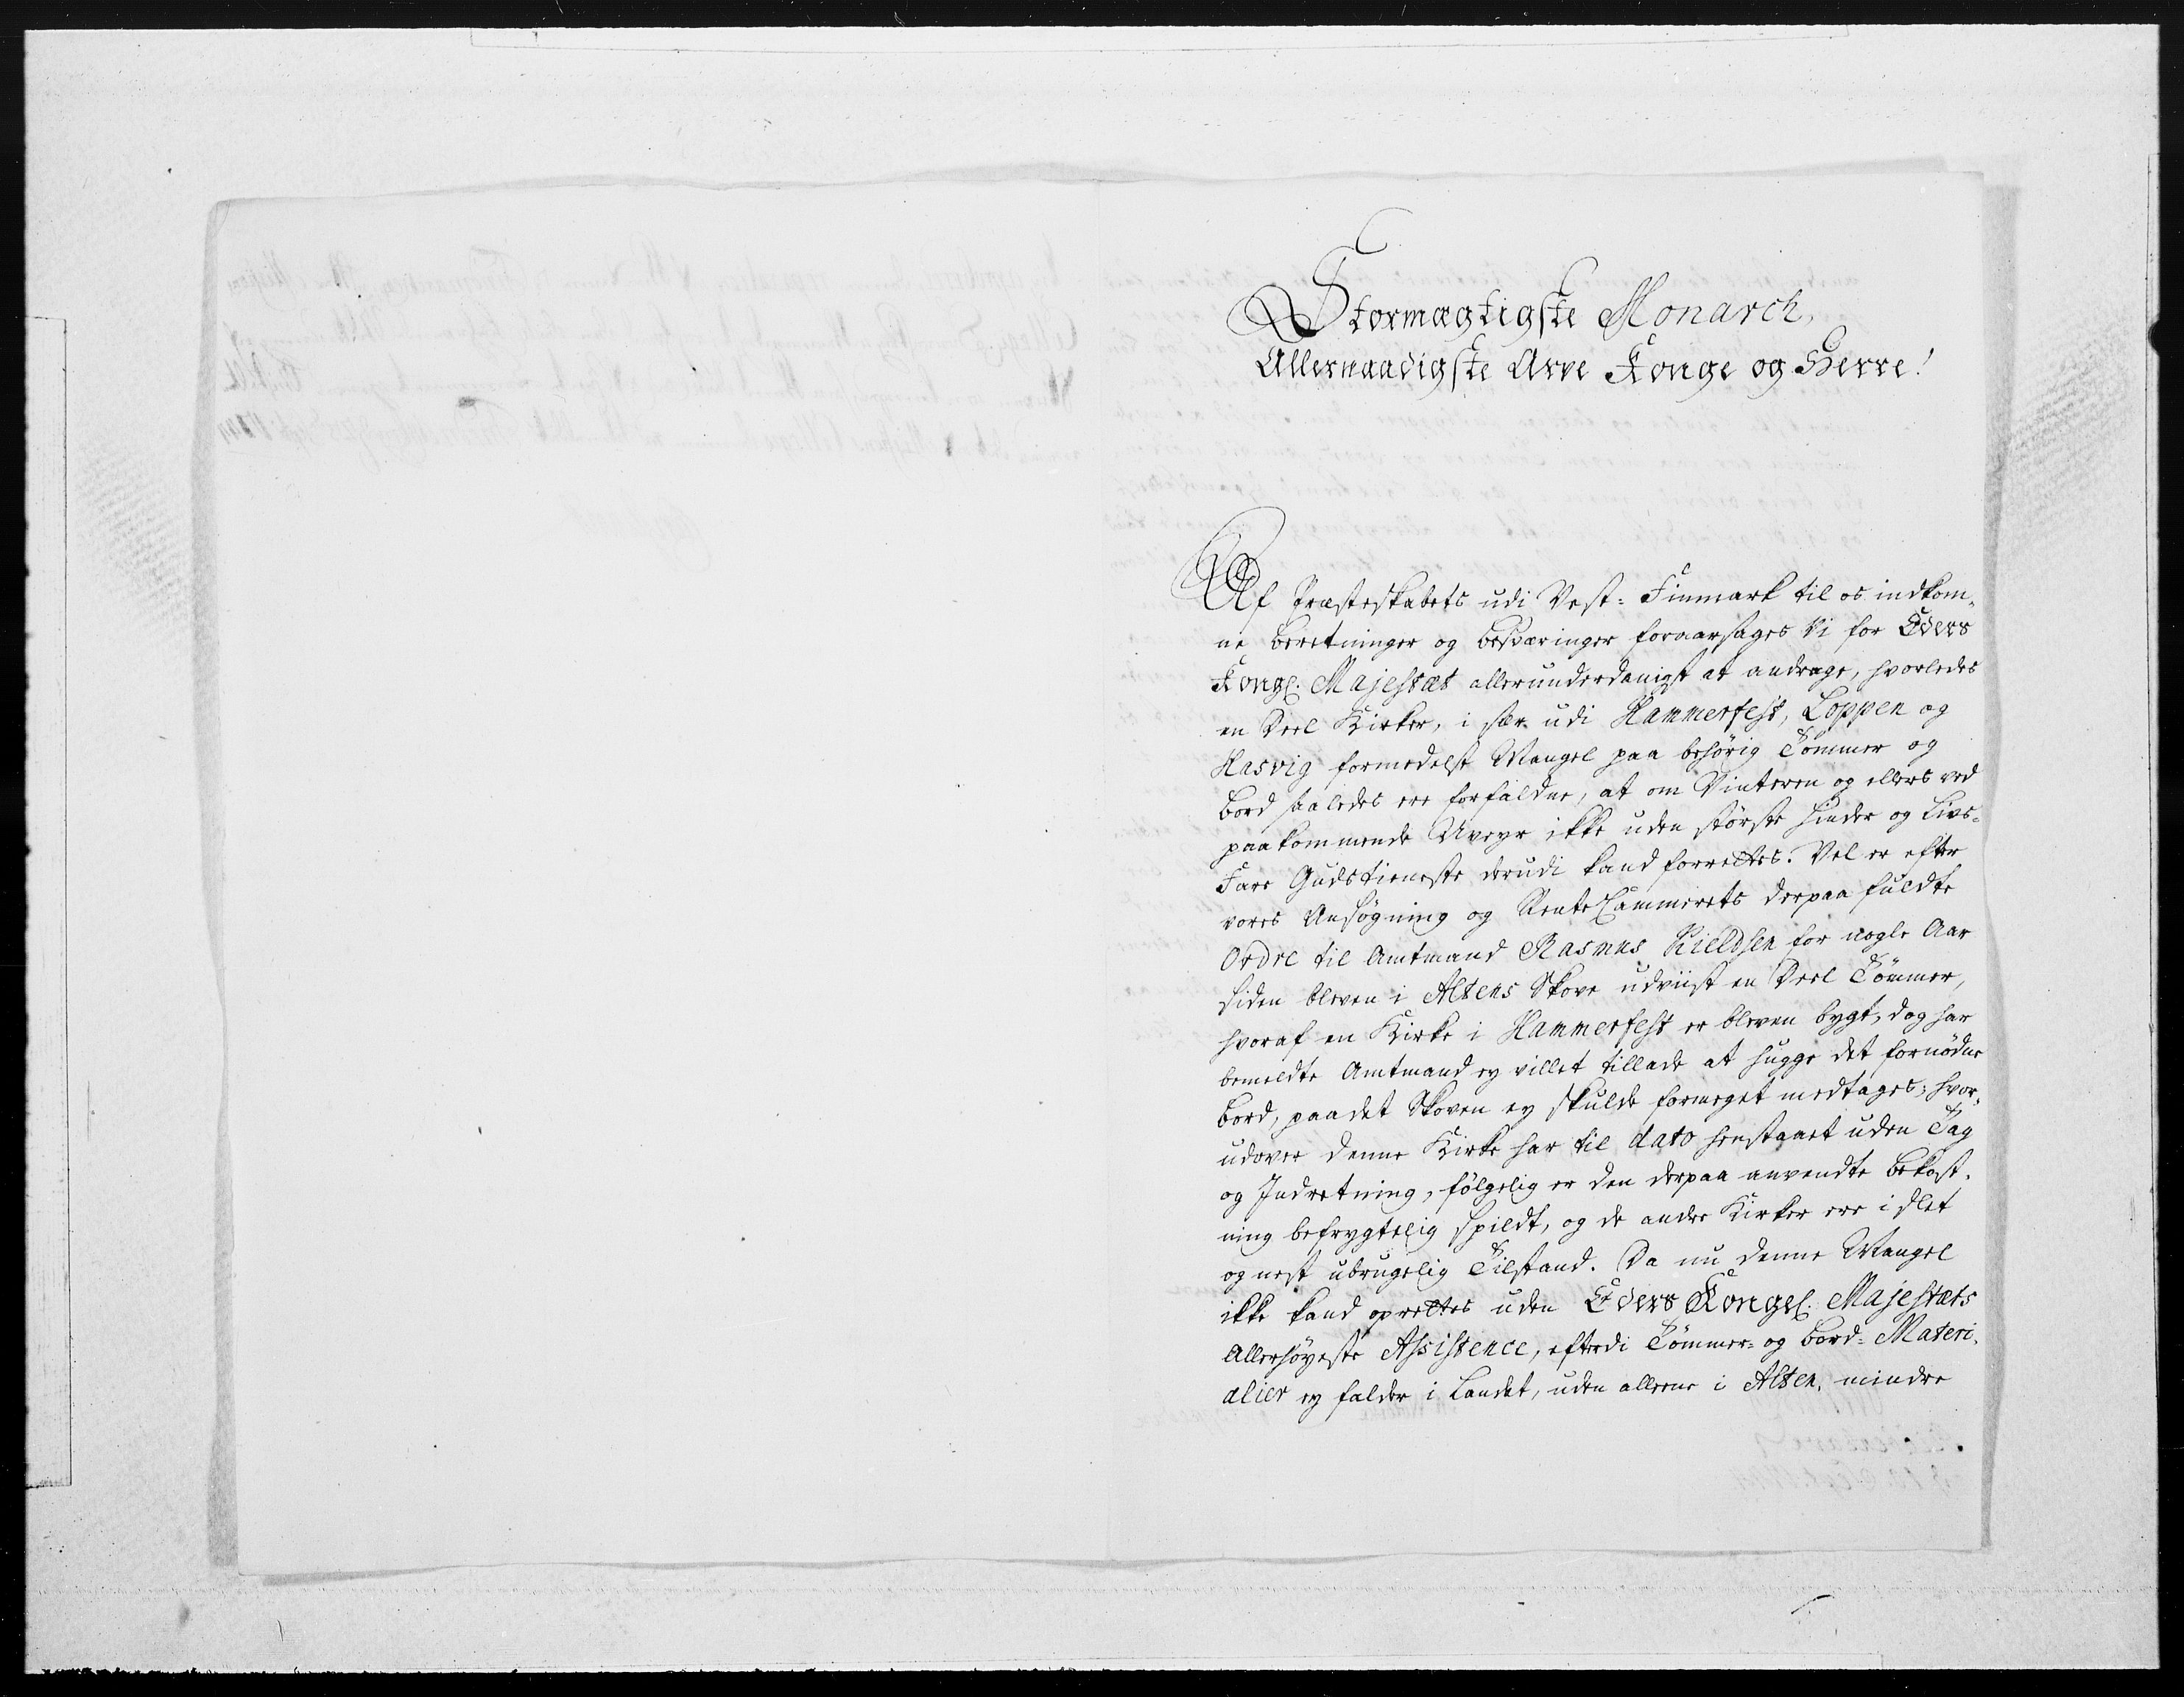 Stormægtigste Monarch,
Allernaadigste Arve Konge og Herre!
Af Præsteskabets udi Vest-Finmark til os indkom-
ne Beretninger og Besværinger foraarsages Vi for Eders
Kongl. Majestæt allerunderdanigst at andrage, hvorledes
en Deel Kirker, i sær udi Hammerfest, Loppen og
Hasvig formedelst Mangel paa behørig Tømmer og
Bord saaledes ere forfaldne, at om Vinteren og ellers ved
paakommende Uveyr ikke uden største Hinder og Livs-
Fare Gudstieneste derudi kand forrettes. Vel er efter
vores Ansøgning og RenteCammerets derpaa fuldte
Ordre til Amtmand Rasmus Kieldsen for nogle Aar
siden bleven i Altens Skove udviist en Deel Tømmer,
hvoraf en Kirke i Hammerfest er bleven bygt, dog har
bemeldte Amtmand ey villet tillade at hugge det fornødne
Bord, paa det Skoven ey skulde formeget medtages; hvor-
udover denne Kirke har til dato henstaaet uden Tag
og Indretning, følgelig er den derpaa anvendte Bekost-
ning befrygtelig spildt, og de andre Kirker ere i slet
og nest ubrugelig Tilstand. Da nu denne Mangel
ikke kand oprettes uden Eders Kongel. Majestæts
Allerhøyeste Assistence, efterdi Tømmer- og Bord-Materi-
alier ey falder i Landet, uden alleene i Alten, mindre